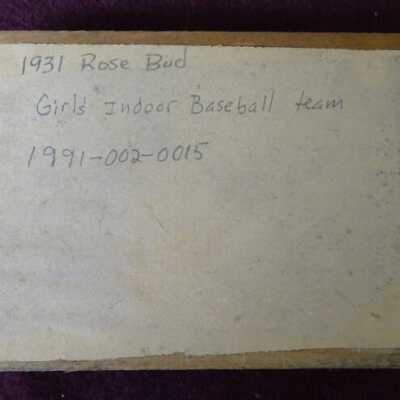 1931 Rose Bud
Girls Indoor Baseball team
1991-002-0015